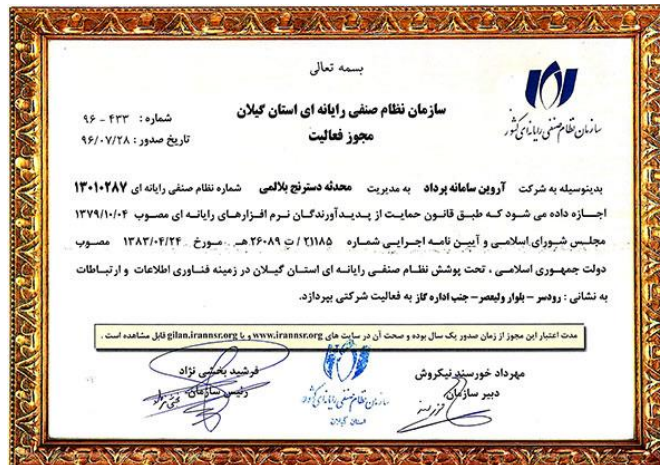 بسمه تعالی
سازمان نظام صنفی رایانه ای کشور
سازمان نظام صنفی رایانه ای استان گیلان
مجوز فعالیت
شماره : ۴۳۳ - ۹۶
تاریخ صدور : ۹۶/۰۷/۲۸
بدینوسیله به شرکت آروین سامانه پرداد به مدیریت محدثه دسترنج بلالمی شماره نظام صنفی رایانه ای ۱۳۰۱۰۲۸۷
اجازه داده می شود که طبق قانون حمایت از پدیدآورندگان نرم افزارهای رایانه ای مصوب ۱۳۷۹/۱۰/۰۴
مجلس شورای اسلامی و آیین نامه اجرایی شماره ۲۱۱۸۵ / ت ۲۶۰۸۹ هـ مورخ ۱۳۸۳/۰۴/۲۴ مصوب
دولت جمهوری اسلامی ، تحت پوشش نظام صنفی رایانه ای استان گیلان در زمینه فناوری اطلاعات و ارتباطات
به نشانی : رودسر – بلوار ولیعصر– جنب اداره گاز به فعالیت شرکتی بپردازد.
مدت اعتبار این مجوز از زمان صدور یک سال بوده و صحت آن در سایت های www.irannsr.org و یا gilan.irannsr.org قابل مشاهده است .
مهرداد خورسند نیکروش
دبیر سازمان
سازمان نظام صنفی رایانه ای کشور
استان گیلان
فرشید بخشی نژاد
رئیس سازمان